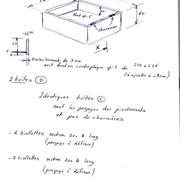 fond ep. 5
charnière
X
X
de 3 mm
soit fond en contreplaqué ep. 5 de 290 x 626
(à ajuster à -2mm)
2 boîtes (D)
Identiques boîtes (C)
sauf les perçages des pivotements
et pas de charnières
- 4 biellettes section 20x8 long
(perçage à définir)
- 8 biellettes section 20x8 long
(perçage à définir)